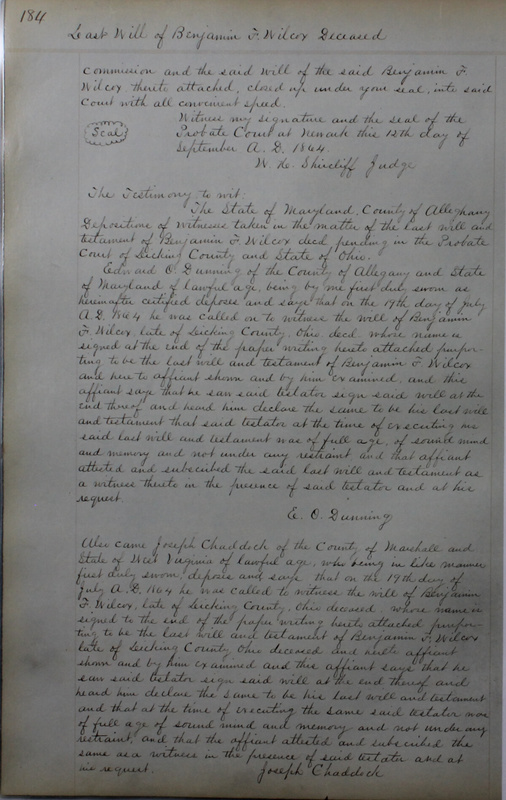 184
Last Will of Benjamin F. Wilcox Deceased
Commission and the said Will of the said Benjamin F.
Wilcox thereto attached, closed up under your seal, into said
Court with all convenient speed.
Witness my signature and the seal of the
Seal
Probate Court at Newark this 12th day of
September A. D. 1864.
W. H. Shircliff Judge
The Testimony to wit:
The State of Maryland, County of Alleghany
Depositions of witnesses taken in the matter of the last will and
testament of Benjamin F. Wilcox decd, pending in the Probate
Court of Licking County and State of Ohio.
Edward O. Dunning of the County of Allegany and State
of Maryland of lawful age, being by me first duly sworn as
hereinafter certified deposes and says that on the 19th day of July
A.D. 1864 he was called on to witness the will of Benjamin
F. Wilcox, late of Licking County, Ohio, decd. whose name is
signed at the end of the paper writing hereto attached purpor-
ting to be the last will and testament of Benjamin F. Wilcox
and here to affiant shown and by him examined, and this
affiant says that he saw said testator sign said will at the
end thereof and heard him declare the same to be his last will
and testament that said testator at the time of executing his
said last will and testament was of full age, of sound mind
and memory and not under any restraint and that affiant
attested and subscribed the said last will and testament as
a witness thereto in the presence of said testator and at his
request.
E. O. Dunning
Also came Joseph Chaddock of the County of Marshall and
State of West Virginia of lawful age, who being in like manner
first duly sworn, deposes and says that on the 19th day of
July A.D. 1864 he was called to witness the will of Benjamin
F. Wilcox, late of Licking County, Ohio deceased, whose name is
signed to the end of the paper writing hereto attached purpor-
ting to be the last will and testament of Benjamin F. Wilcox
late of Licking County Ohio deceased and hereto affiant
shown and by him examined and this affiant says that he
saw said testator sign said will at the end thereof and
heard him declare the same to be his last will and testament
and that at the time of executing the same said testator was
of full age of sound mind and memory and not under any
restraint, and that the affiant attested and subscribed the
same as a witness in the presence of said testator and at
his request.
Joseph Chaddock